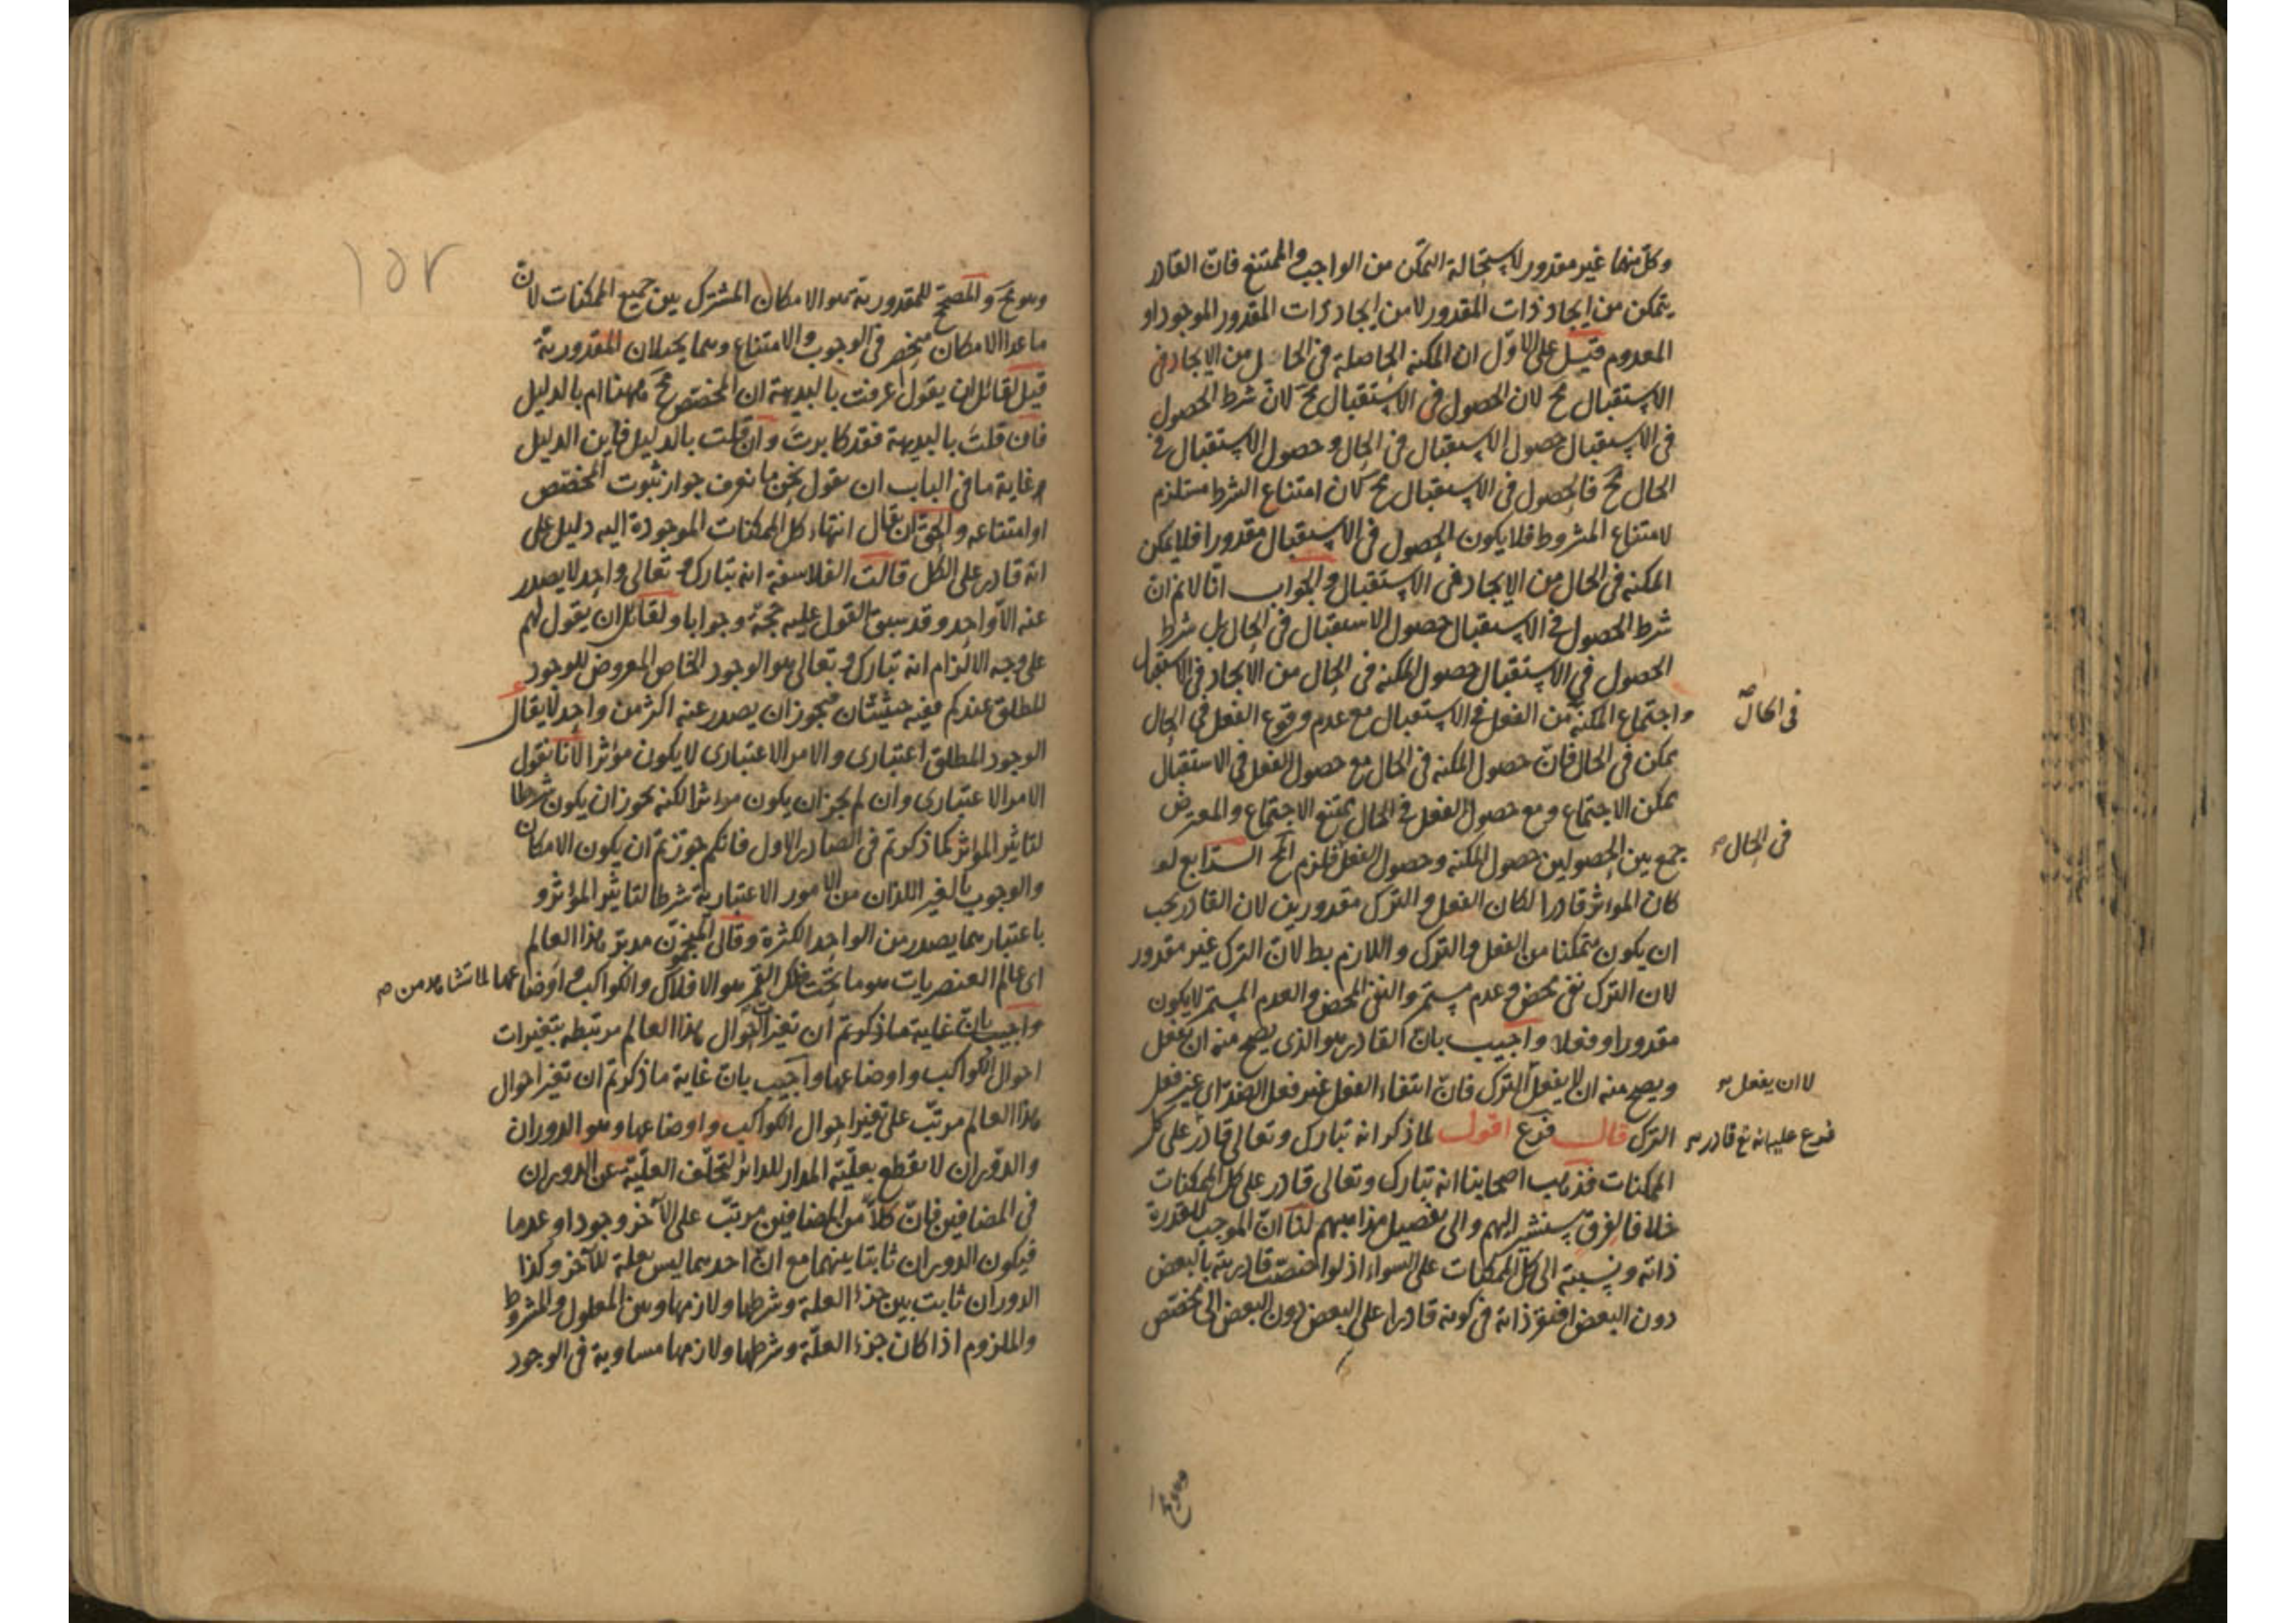 وكل منهما غير مقدور لاستحالة التمكن من الواجب والممتنع فان القادر
يتمكن من ايجاد ذات المقدور لا من ايجاد ذات المقدور الموجود او
المعدوم قيل على الاول ان المكنة الحاصلة في الحال من الايجاد في
الاستقبال مح لان الحصول في الاستقبال مح لان شرط الحصول
في الاستقبال حصول الاستقبال في الحال وحصول الاستقبال في
الحال مح فالحصول في الاستقبال مح لان امتناع الشرط مستلزم
لامتناع المشروط فلا يكون الحصول في الاستقبال مقدورا فلا يمكن
المكنة في الحال من الايجاد في الاستقبال والجواب انا لا نم ان
شرط الحصول في الاستقبال حصول الاستقبال في الحال بل شرط
الحصول في الاستقبال حصول المكنة في الحال من الايجاد في الاستقبال
واجتماع المكنة من الفعل في الاستقبال مع عدم وقوع الفعل في الحال
في الحال
ممكن في الحال فان حصول المكنة في الحال مع حصول الفعل في الاستقبال
ممكن الاجتماع ومع حصول الفعل في الحال ممتنع الاجتماع والمعترض
جمع بين الحصولين حصول المكنة وحصول الفعل فلزم المح الرابع لو
في الحال
كان المؤثر قادرا لكان الفعل والترك مقدورين لان القادر يجب
ان يكون متمكنا من الفعل والترك واللازم بط لان الترك غير مقدور
لان الترك نفي محض وعدم مستمر والنفي المحض والعدم المستمر لا يكون
مقدورا وفعلا واجيب بان القادر هو الذي يصح منه ان يفعل
ويصح منه ان لا يفعل الترك فان انتفاء الفعل غير فعل الضد اي غير فعل
لا ان يفعل
الترك قال فرع اقول لما ذكر انه تبارك وتعالى قادر على كل
فرع عليه انه تع قادر
الممكنات فذهب اصحابنا انه تبارك وتعالى قادر على كل الممكنات
خلافا لفرق ستشير اليهم والى تفصيل مذاهبهم لنا ان الموجب للقدرة
ذاته ونسبته الى كل الممكنات على السواء اذ لو اختصت قادريته بالبعض
دون البعض افتقر ذاته في كونه قادرا على البعض دون البعض الى مخصص
وهو مح
١٥٢
وهو مح والمصحح للمقدورية هو الامكان المشترك بين جميع الممكنات لان
ما عدا الامكان منحصر في الوجوب والامتناع وهما يحيلان المقدورية
قيل لقائل ان يقول اعرفت بالبديهة ان المخصص مح ههنا ام بالدليل
فان قلت بالبديهة فقد كابرت وان قلت بالدليل فاين الدليل
وغاية ما في الباب ان يقول نحن ما نعرف جواز ثبوت المخصص
او امتناعه والحق ان يقال انتهاء كل الممكنات الموجودة اليه دليل على
انه قادر على الكل قالت الفلاسفة انه تبارك وتعالى واحد لا يصدر
عنه الا واحد وقد سبق القول عليه حجة وجوابا ولقائل ان يقول لهم
على وجه الالزام انه تبارك وتعالى هو الوجود الخاص المعروض للوجود
المطلق عندكم ففيه حيثيتان فيجوز ان يصدر عنه اكثر من واحد لا يقال
الوجود المطلق اعتباري والامر الاعتباري لا يكون مؤثرا لانا نقول
الامر الاعتباري وان لم يجز ان يكون مؤثرا لكنه يجوز ان يكون شرطا
لتاثير المؤثر كما ذكرتم في الصادر الاول فانكم جوزتم ان يكون الامكان
والوجوب بالغير اللذان من الامور الاعتبارية شرطا لتاثير المؤثر و
باعتبارهما يصدر من الواحد الكثرة وقال المنجمون مدبر هذا العالم
اى عالم العنصريات هو ما تحت فلك القمر هو الافلاك والكواكب واوضاعها لما نشاهد من
واجيب بان غاية ما ذكرتم ان تغير احوال هذا العالم مرتبطه بتغيرات
احوال الكواكب واوضاعها واجيب بان غاية ما ذكرتم ان تغير احوال
هذا العالم مرتب على تغير احوال الكواكب واوضاعها وهو الدوران
والدوران لا يقطع بعلية المدار للدائر لتخلف العلية عن الدوران
في المضافين فان كلا من المضافين مرتب على الآخر وجودا وعدما
فيكون الدوران ثابتا بينهما مع ان احدهما ليس بعلة للآخر وكذا
الدوران ثابت بين جزء العلة وشرطها ولازمها وبين المعلول والمشروط
والملزوم اذا كان جزء العلة وشرطها ولازمها مساوية في الوجود